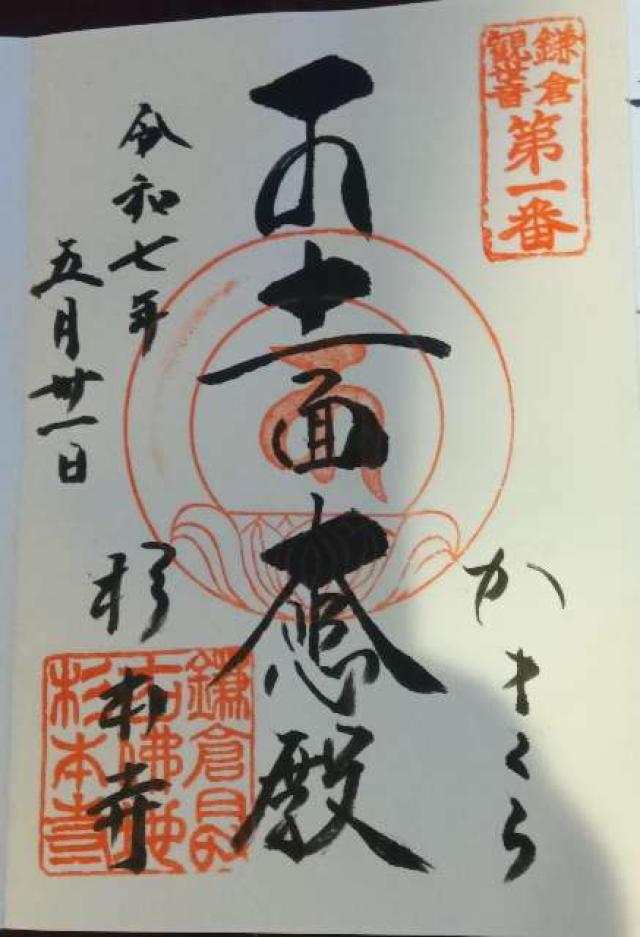 鎌倉
觀世音
第一番
かまくら
十一面大悲殿
令和七年
五月卅一日
杉本寺
鎌倉最
古佛地
杉本寺